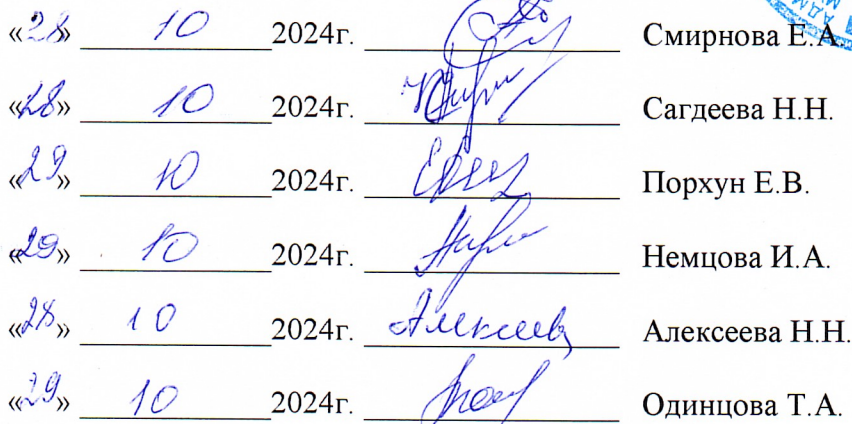 «28» 10 2024г. Смирнова Е.А.
«28» 10 2024г. Сагдеева Н.Н.
«29» 10 2024г. Порхун Е.В.
«29» 10 2024г. Немцова И.А.
«28» 10 2024г. Алексеева Н.Н.
«29» 10 2024г. Одинцова Т.А.